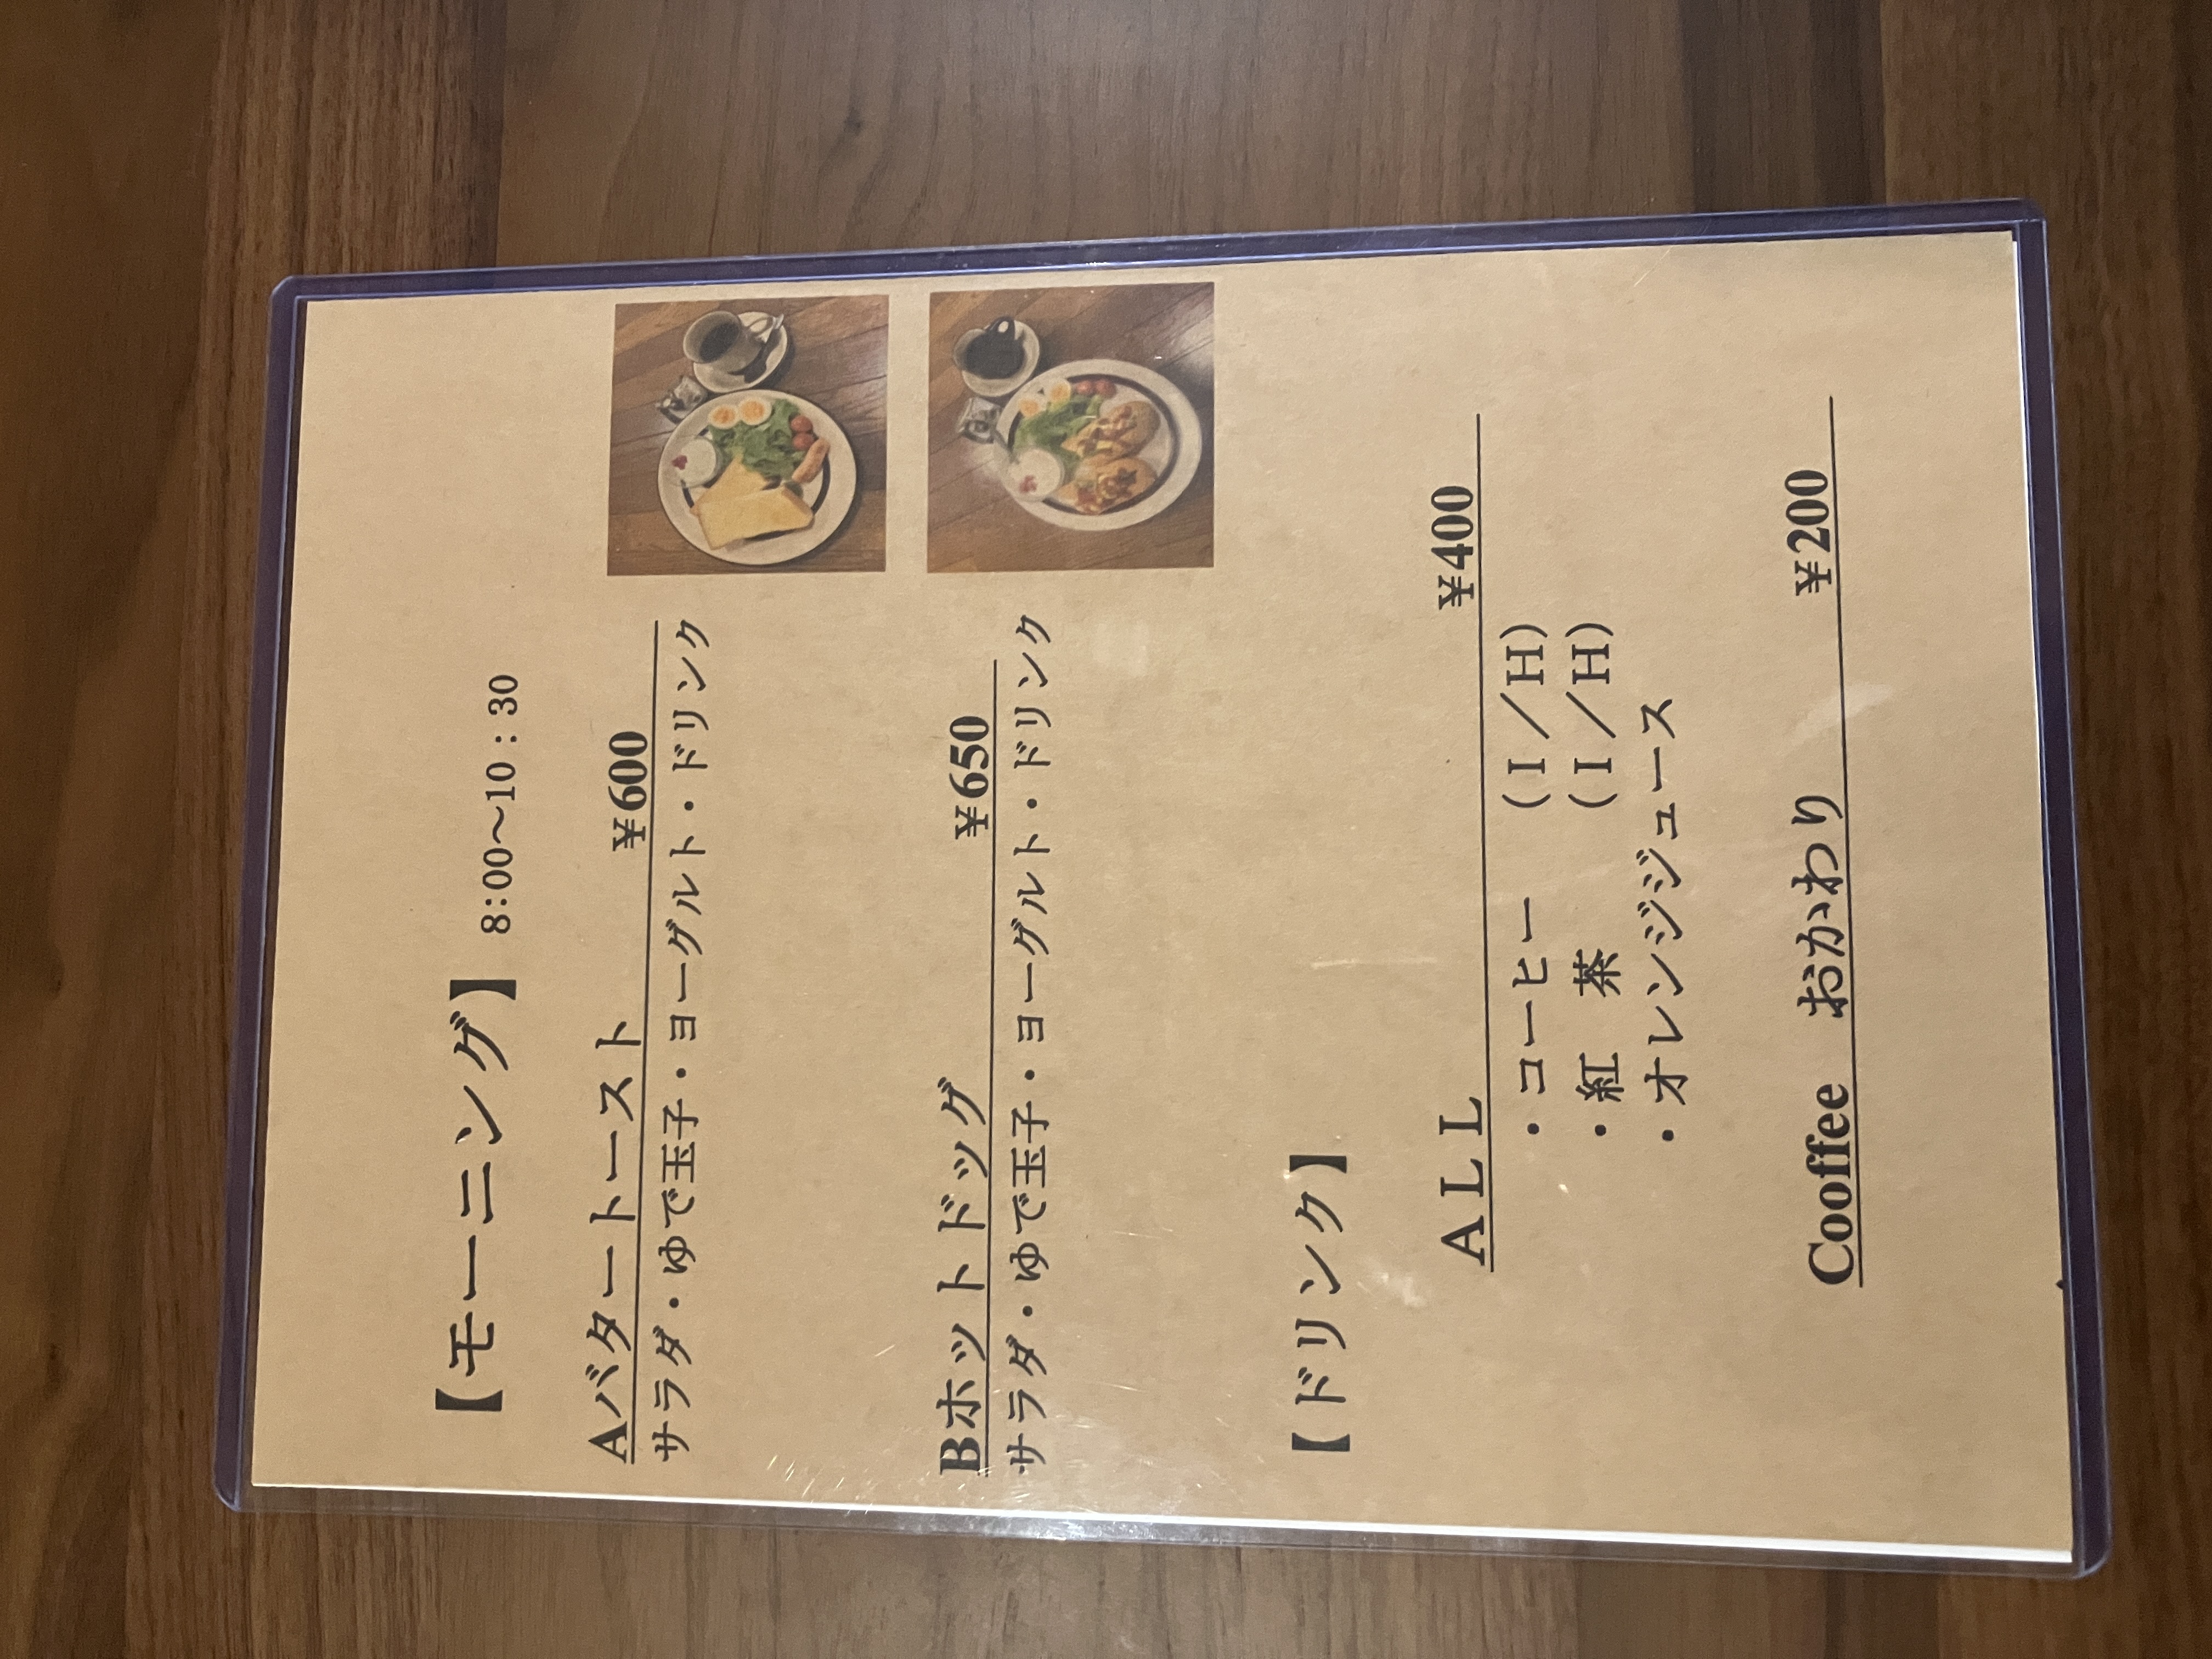 【モーニング】 8:00～10：30
Aバタートースト ¥600
サラダ・ゆで玉子・ヨーグルト・ドリンク
Bホットドッグ ¥650
サラダ・ゆで玉子・ヨーグルト・ドリンク
【ドリンク】
ＡＬＬ ¥400
・コーヒー （Ｉ／Ｈ）
・紅　茶 （Ｉ／Ｈ）
・オレンジジュース
Cooffee おかわり ¥200